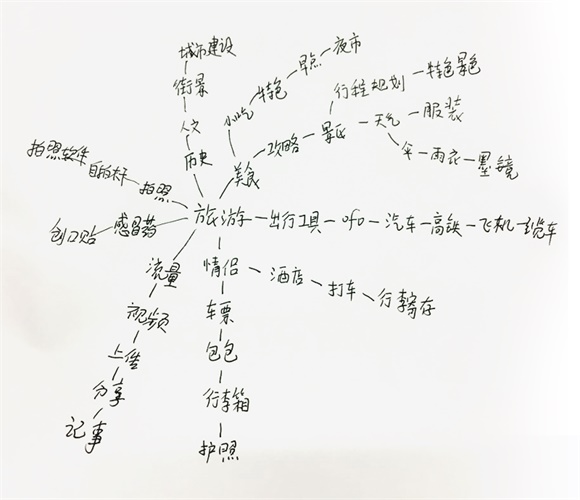 城市建设
街景
人文
历史
小吃
特色
早点
夜市
美食
攻略
景区
行程规划
特色景色
天气
服装
伞
雨衣
墨镜
拍照软件
自拍杆
拍照
旅游
出行工具
ofo
汽车
高铁
飞机
缆车
创口贴
感冒药
流量
视频
上传
分享
记事
情侣
酒店
打车
行李寄存
车票
包包
行李箱
护照